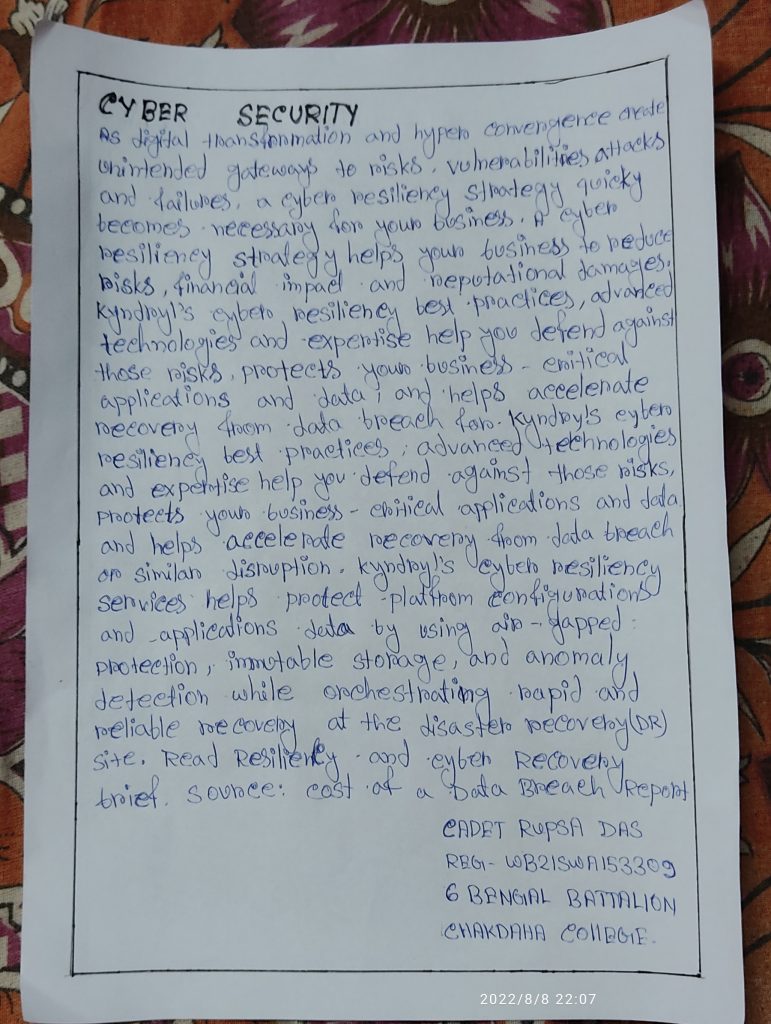 CYBER SECURITY
As digital transformation and hyper convergence create
unintended gateways to risks, vulnerabilities attacks
and failures, a cyber resiliency strategy quicky
becomes necessary for your business. A cyber
resiliency strategy helps your business to reduce
risks, financial impact and reputational damages.
Kyndryl's cyber resiliency best practices, advanced
technologies and expertise help you defend against
those risks, protects your business-critical
applications and data, and helps accelerate
recovery from data breach for Kyndry's cyber
resiliency best practices, advanced technologies
and expertise help you defend against those risks,
protects your business-critical applications and data
and helps accelerate recovery from data breach
or similar disruption. Kyndryl's cyber resiliency
services helps protect platfrom configurations
and applications data by using air-gapped
protection, immutable storage, and anomaly
detection while orchestrating rapid and
reliable recovery at the disaster recovery(DR)
site. Read Resiliency and cyber Recovery
brief. Source: cost of a Data Breach Report
CADET RUPSA DAS
REG- WB21SWA153309
6 BENGAL BATTALION
CHAKDAHA COllEGE.
2022/8/8 22:07